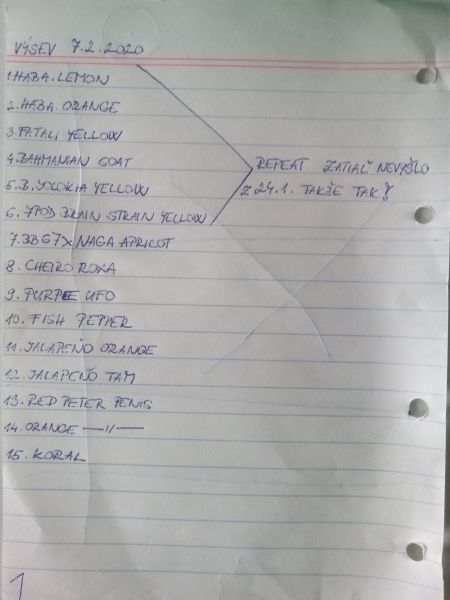 VÝSEV 7.2.2020
1. HABA. LEMON
2. HABA. ORANGE
3. FATALI YELLOW
4. BAHMANIAN GOAT
5. B. JOLOKIA YELLOW
6. 7POD BRAIN STRAIN YELLOW
REPEAT ZATIAĽ NEVYŠLO
Z 24.1. TAKŽE TAK!
7. BBG7 X NAGA APRICOT
8. CHEIRO ROXA
9. PURPLE UFO
10. FISH PEPPER
11. JALAPEÑO ORANGE
12. JALAPEÑO TAM
13. RED PETER PENIS
14. ORANGE —〃—
15. KORAL
1